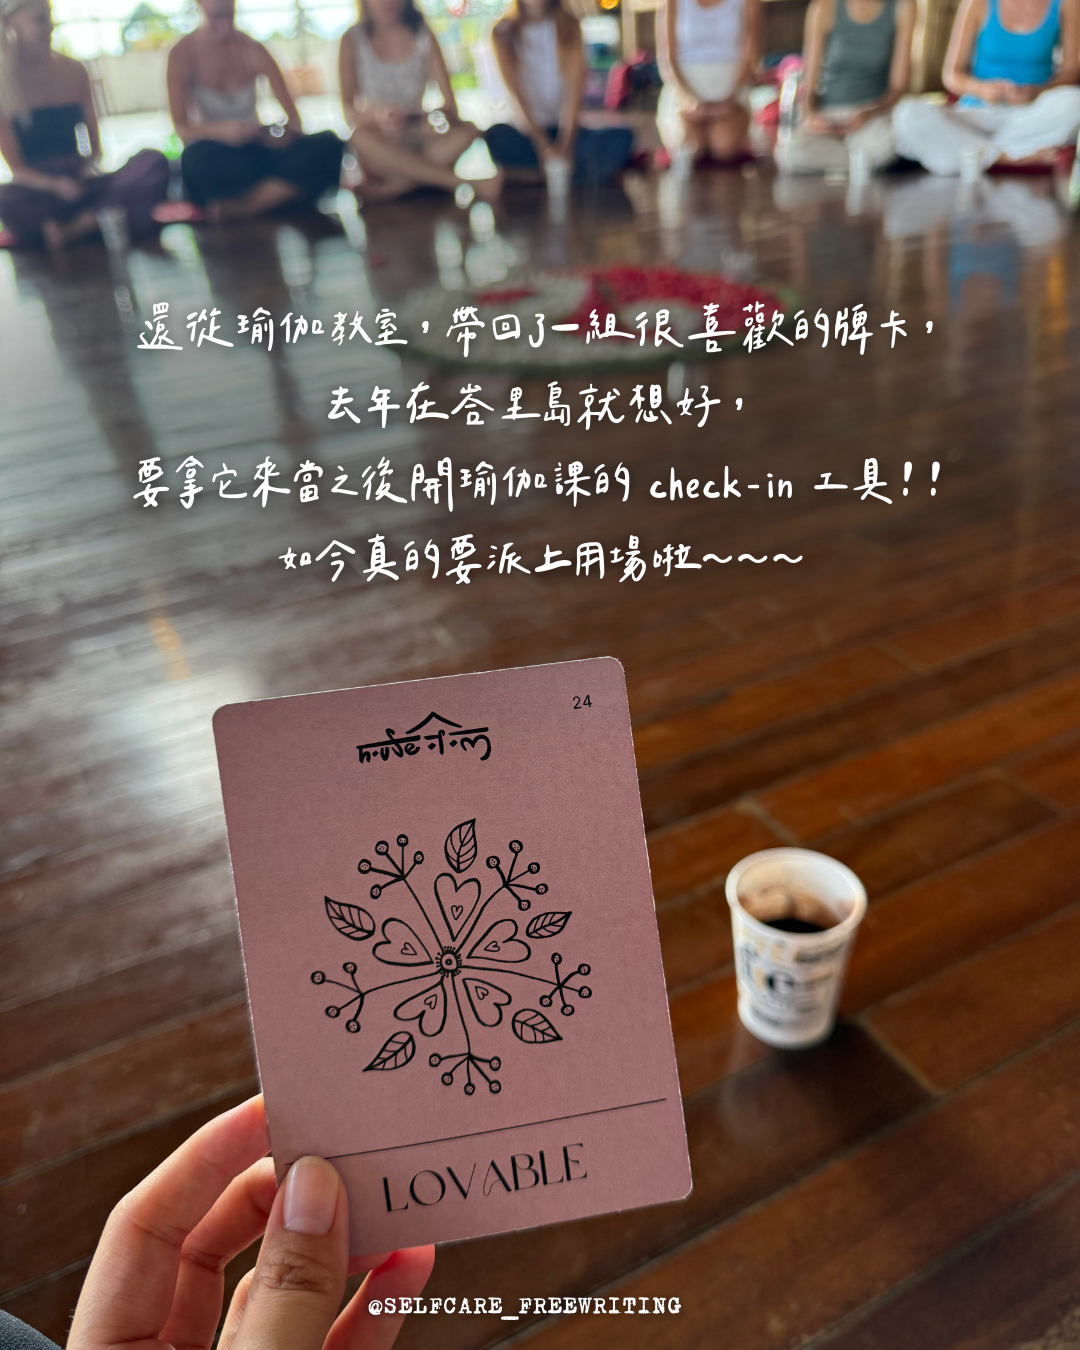 還從瑜伽教室，帶回了一組很喜歡的牌卡，
去年在峇里島就想好，
要拿它來當之後開瑜伽課的 check-in 工具！！
如今真的要派上用場啦～～～
24
house of om
LOVABLE
@SELFCARE_FREEWRITING